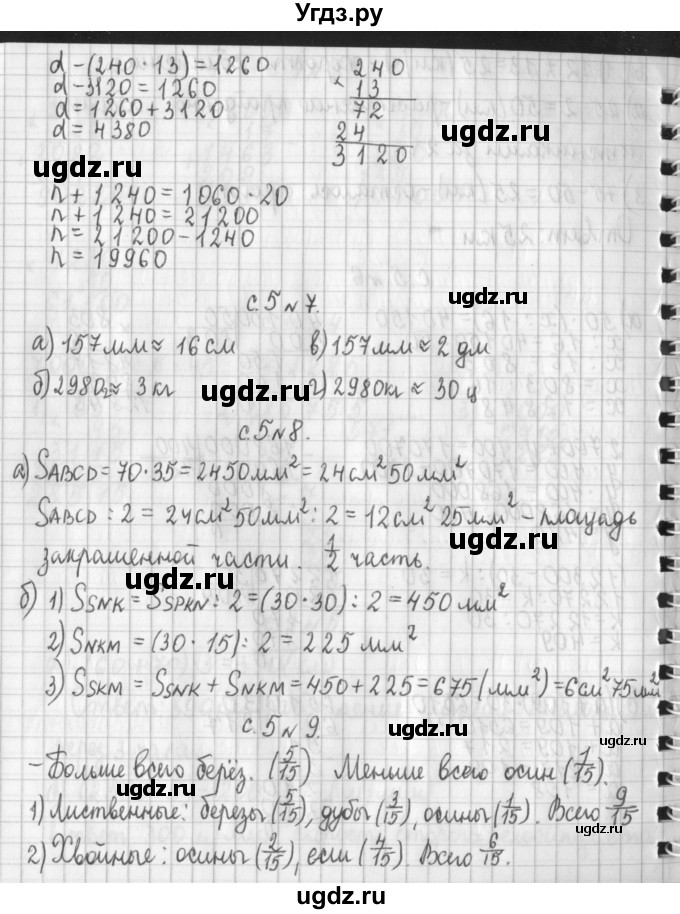 Угдз.ру
d-(240·13)=1260
d-3120=1260
d=1260+3120
d=4380
240
× 13
72
24
3120
ugdz.ru
ugdz.ru
n+1240=1060·20
n+1240=21200
n=21200-1240
n=19960
с.5 №7.
ugdz.ru
а) 157мм≈16см в) 157мм≈2 дм
б) 2980г≈3 кг г) 2980кг≈30 ц
ugdz.ru
с.5 №8.
а) SABCD=70·35=2450мм²=24см²50мм²
SABCD:2=24см²50мм²:2=12см²25мм²-площадь
ugdz.ru
закрашенной части. 1/2 часть.
ugdz.ru
б) 1) SSNK=SSPKN:2=(30·30):2=450мм²
ugdz.ru
2) SNKM=(30·15):2=225мм²
3) SSKM=SSNK+SNKM=450+225=675(мм²)=6см²75мм²
с.5 №9.
ugdz.ru
-Больше всего берёз. (5/15) Меньше всего осин (1/15).
1) Лиственные: березы (5/15), дубы (3/15), осины (1/15). Всего 9/15
ugdz.ru
2) Хвойные: осины (2/15), если (4/15). Всего 6/15.
ugdz.ru
ugdz.ru